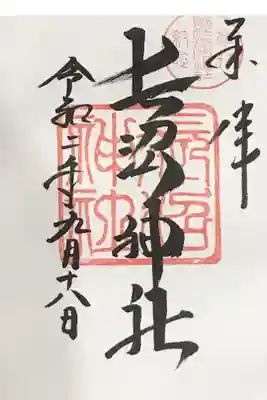 奉拝
長沼神社
令和二年九月十八日